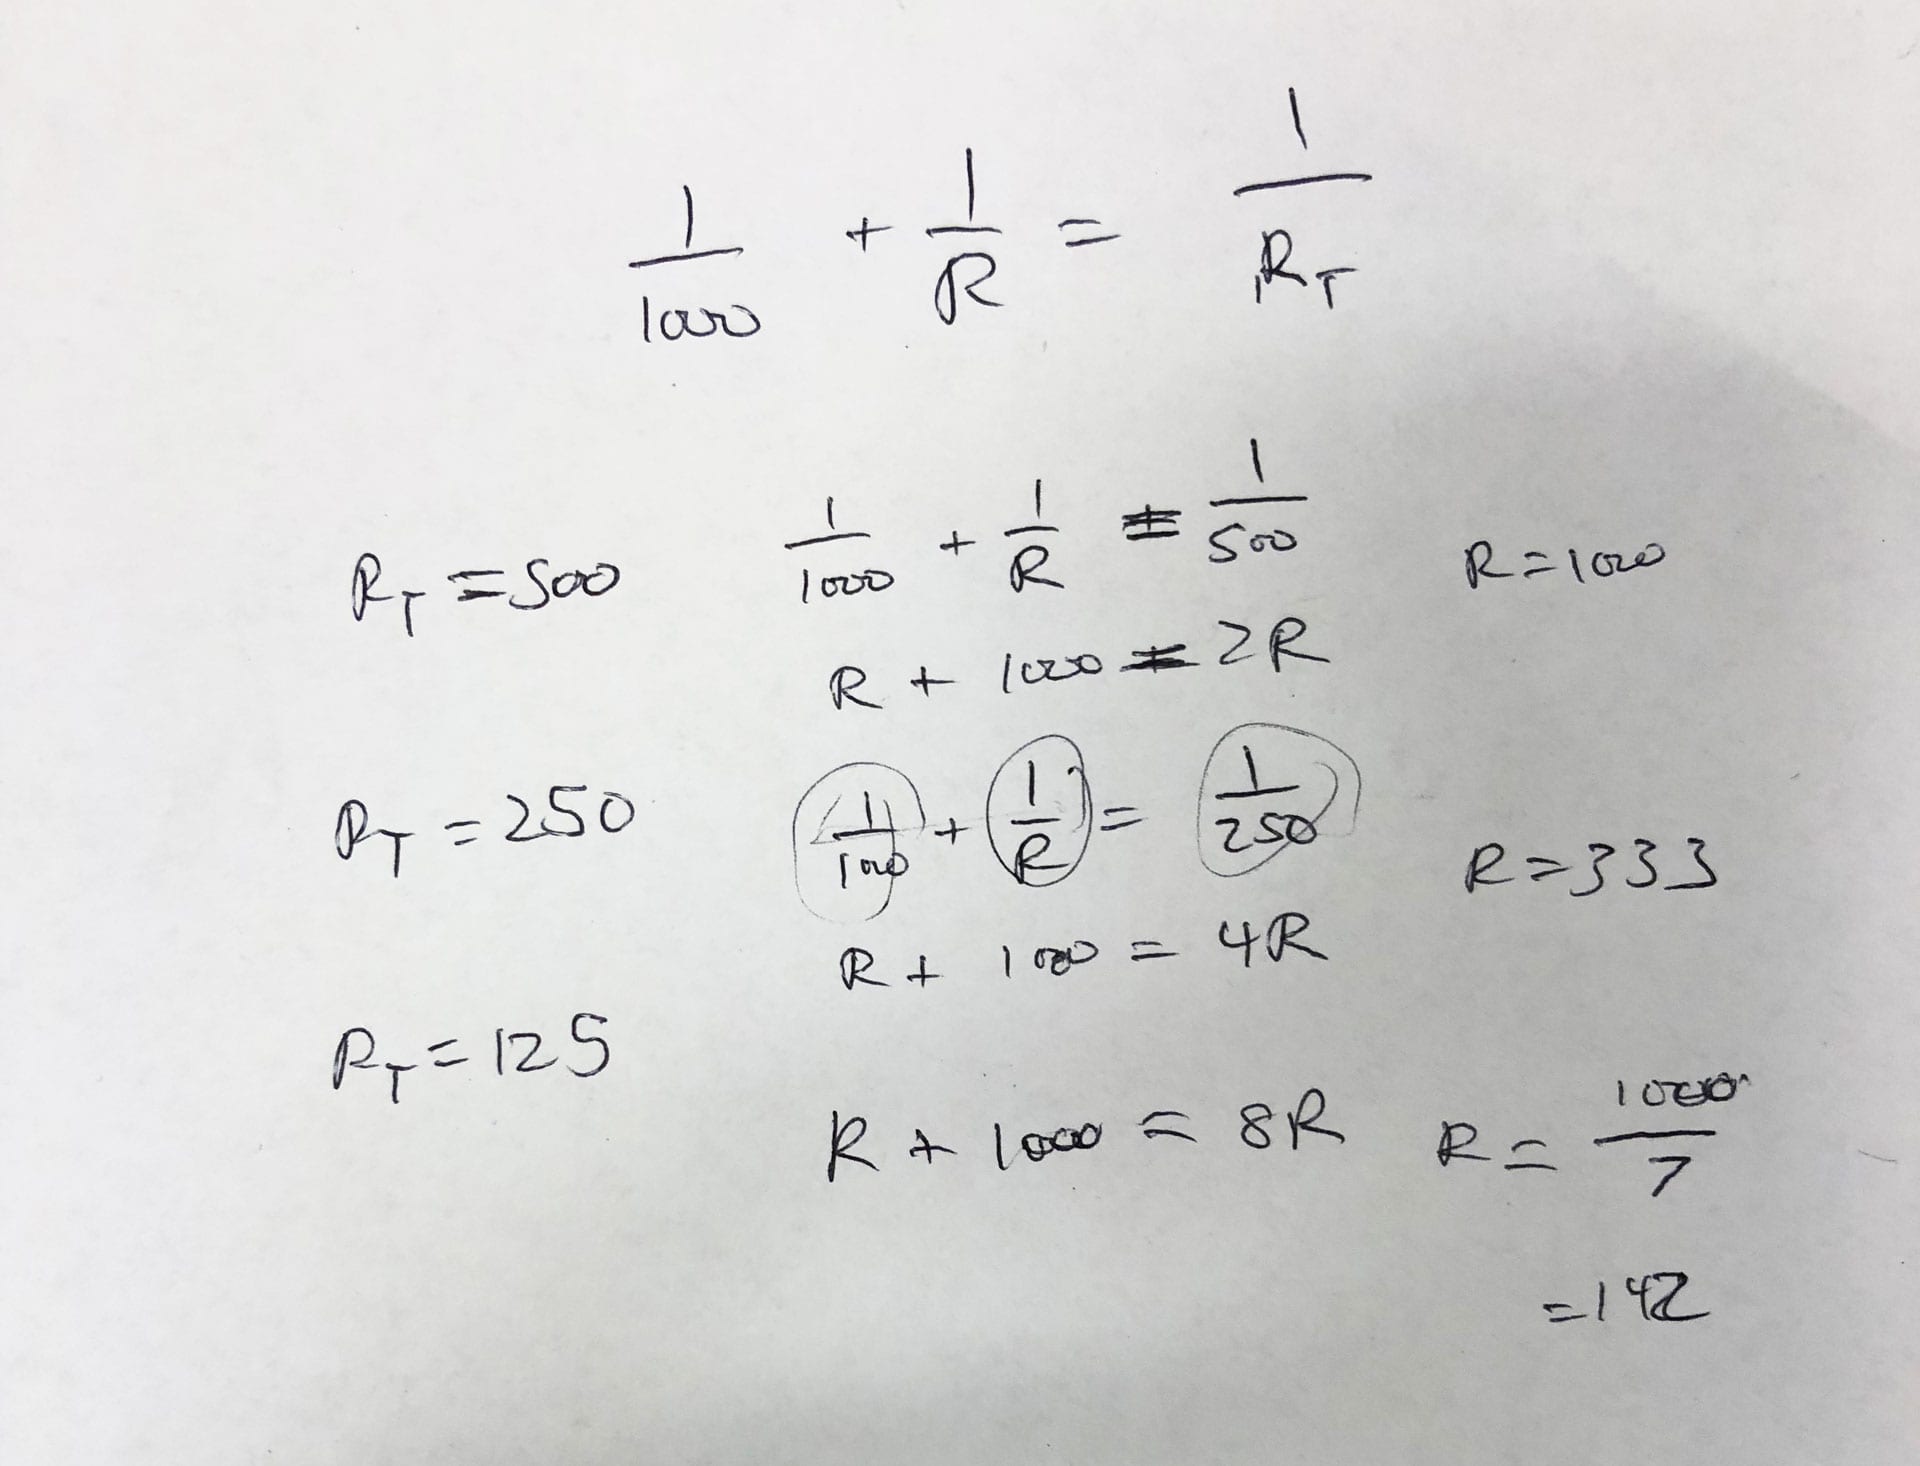 1/1000 + 1/R = 1/R_T
R_T = 500    1/1000 + 1/R = 1/500    R = 1000
R + 1000 = 2R
R_T = 250    1/1000 + 1/R = 1/250    R = 333
R + 1000 = 4R
R_T = 125
R + 1000 = 8R    R = 1000/7
= 142